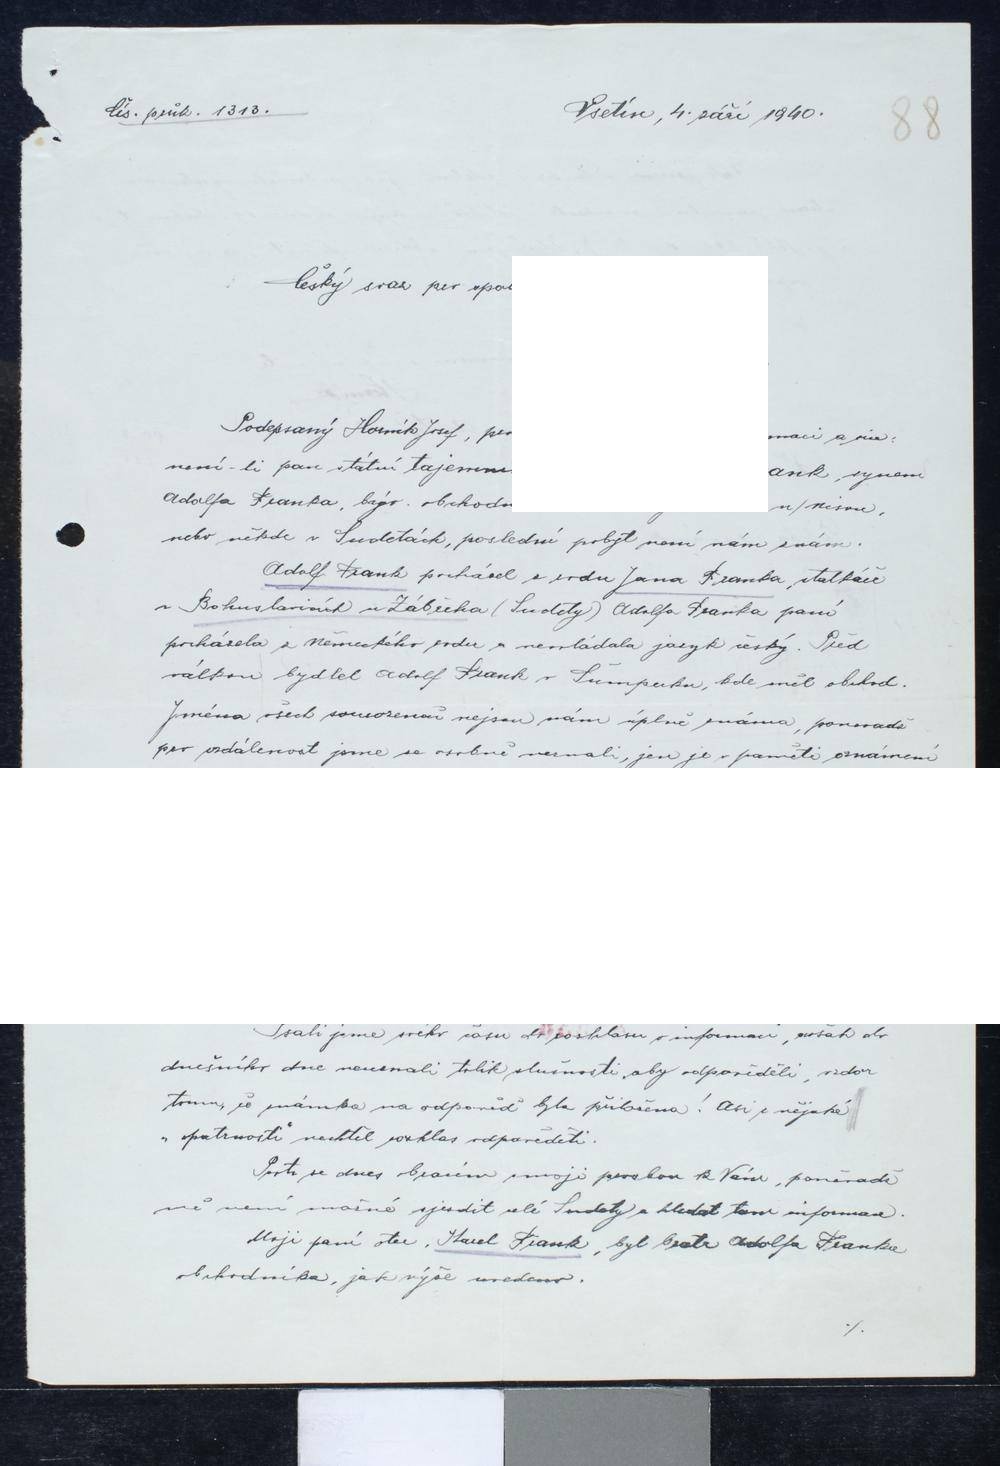 Čís. průk. 1313.
Vsetín, 4. září 1940.
88
Český svaz pro spol
Podepsaný Horník Josef, pro maci a sice:
není-li pan státní tajemn ank, synem
Adolfa Franka, býv. obchodn n/Nisou,
nebo někde v Sudetách, poslední pobyt není nám znám.
Adolf Frank pocházel z rodu Jana Franka, statkáře
v Bohuslavicích u Zábřeha (Sudety) Adolfa Franka paní
pocházela z Německého rodu a neovládala jazyk český. Před
válkou bydlel Adolf Frank v Šumperku, kde měl obchod.
Jména všech sourozenců nejsou nám úplně známa, poněvadž
pro vzdálenost jsme se osobně neznali, jen je v paměti oznámení
Psali jsme svého času do rozhlasu o informaci, avšak do
dnešního dne neuznali tolik slušnosti, aby odpověděli, vzdor
tomu, že známka na odpověď byla přiložena! Asi z nějaké
"opatrnosti" nechtěl rozhlas odpověděti.
Proto se dnes obracím s moji prosbou k Vám, poněvadž
mě není možné sjezdit celé Sudety a hledat tam informace.
Moji paní otec, Karel Frank, byl bratr Adolfa Franka
obchodníka, jak výše uvedeno.
./.